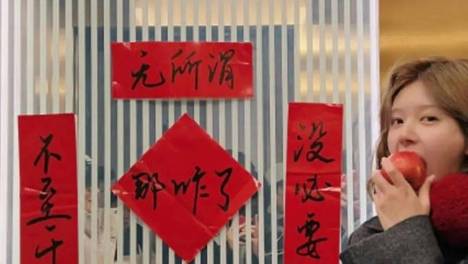 无所谓
不至于
那咋了
没必要